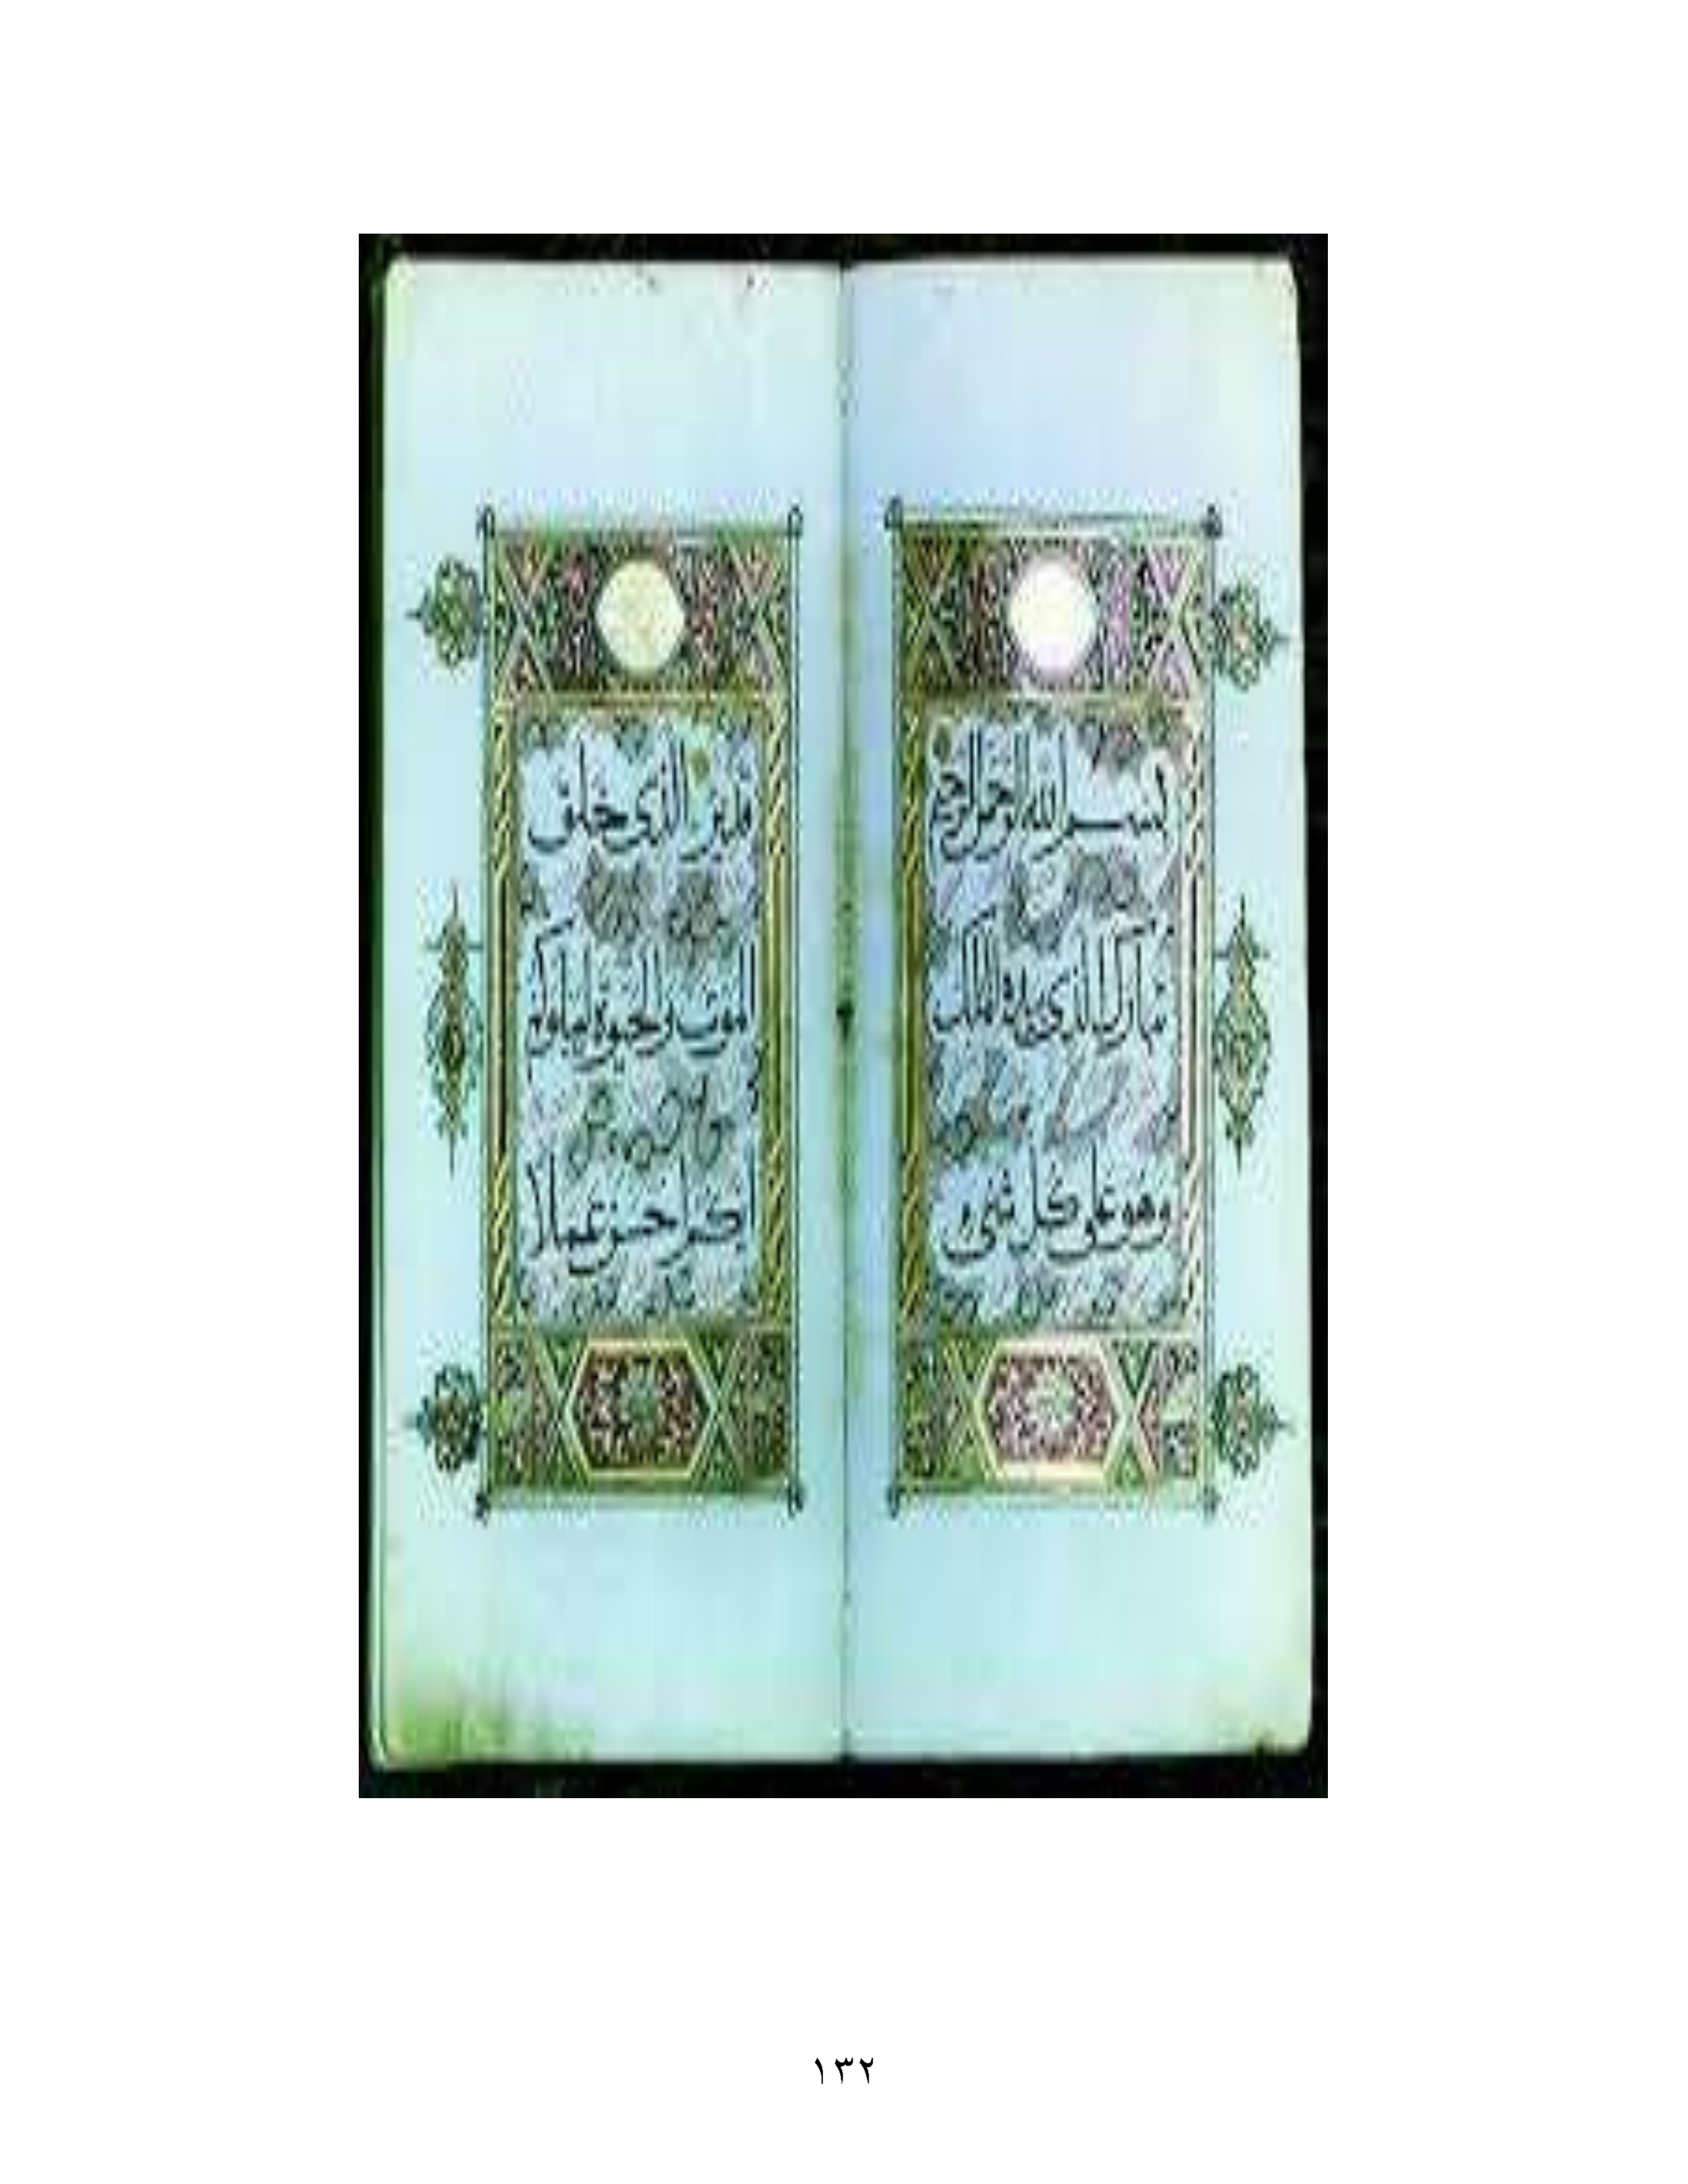 بسم الله الرحمن الرحيم
تبارك الذي بيده الملك
وهو على كل شيء
قدير الذي خلق
الموت والحيوة ليبلوكم
ايكم احسن عملا
١٣٢